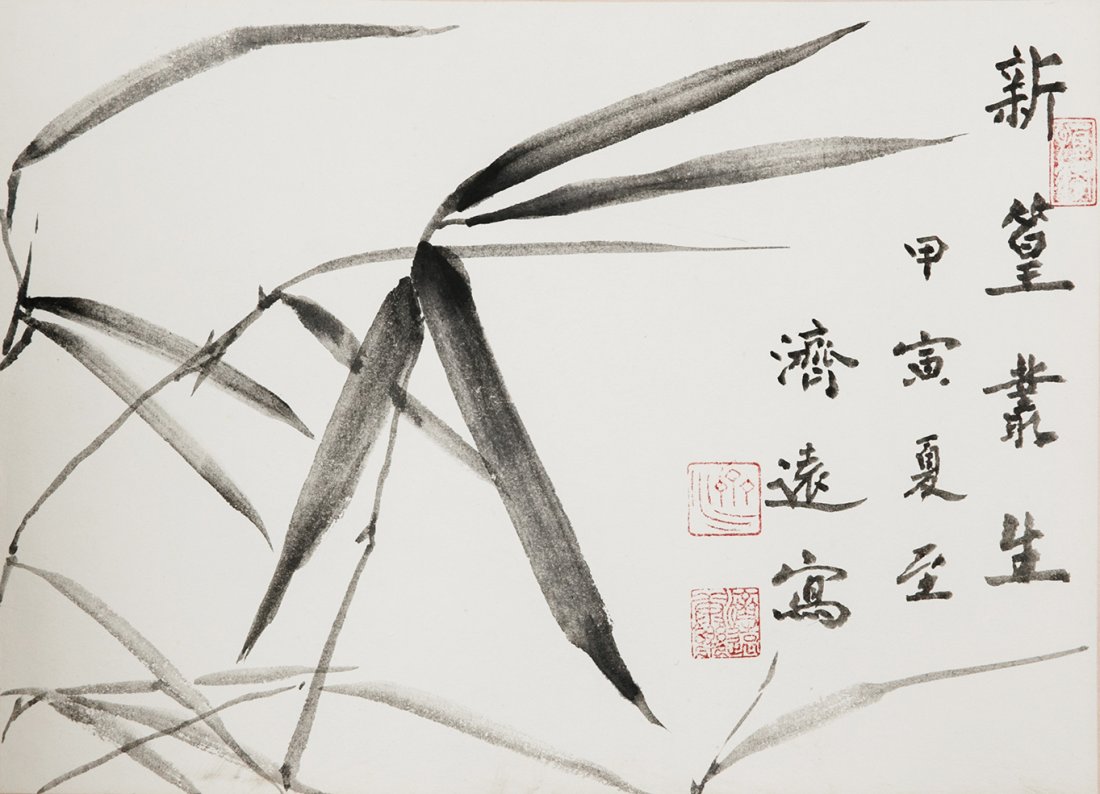 新篁叢生
甲寅夏至
濟遠寫